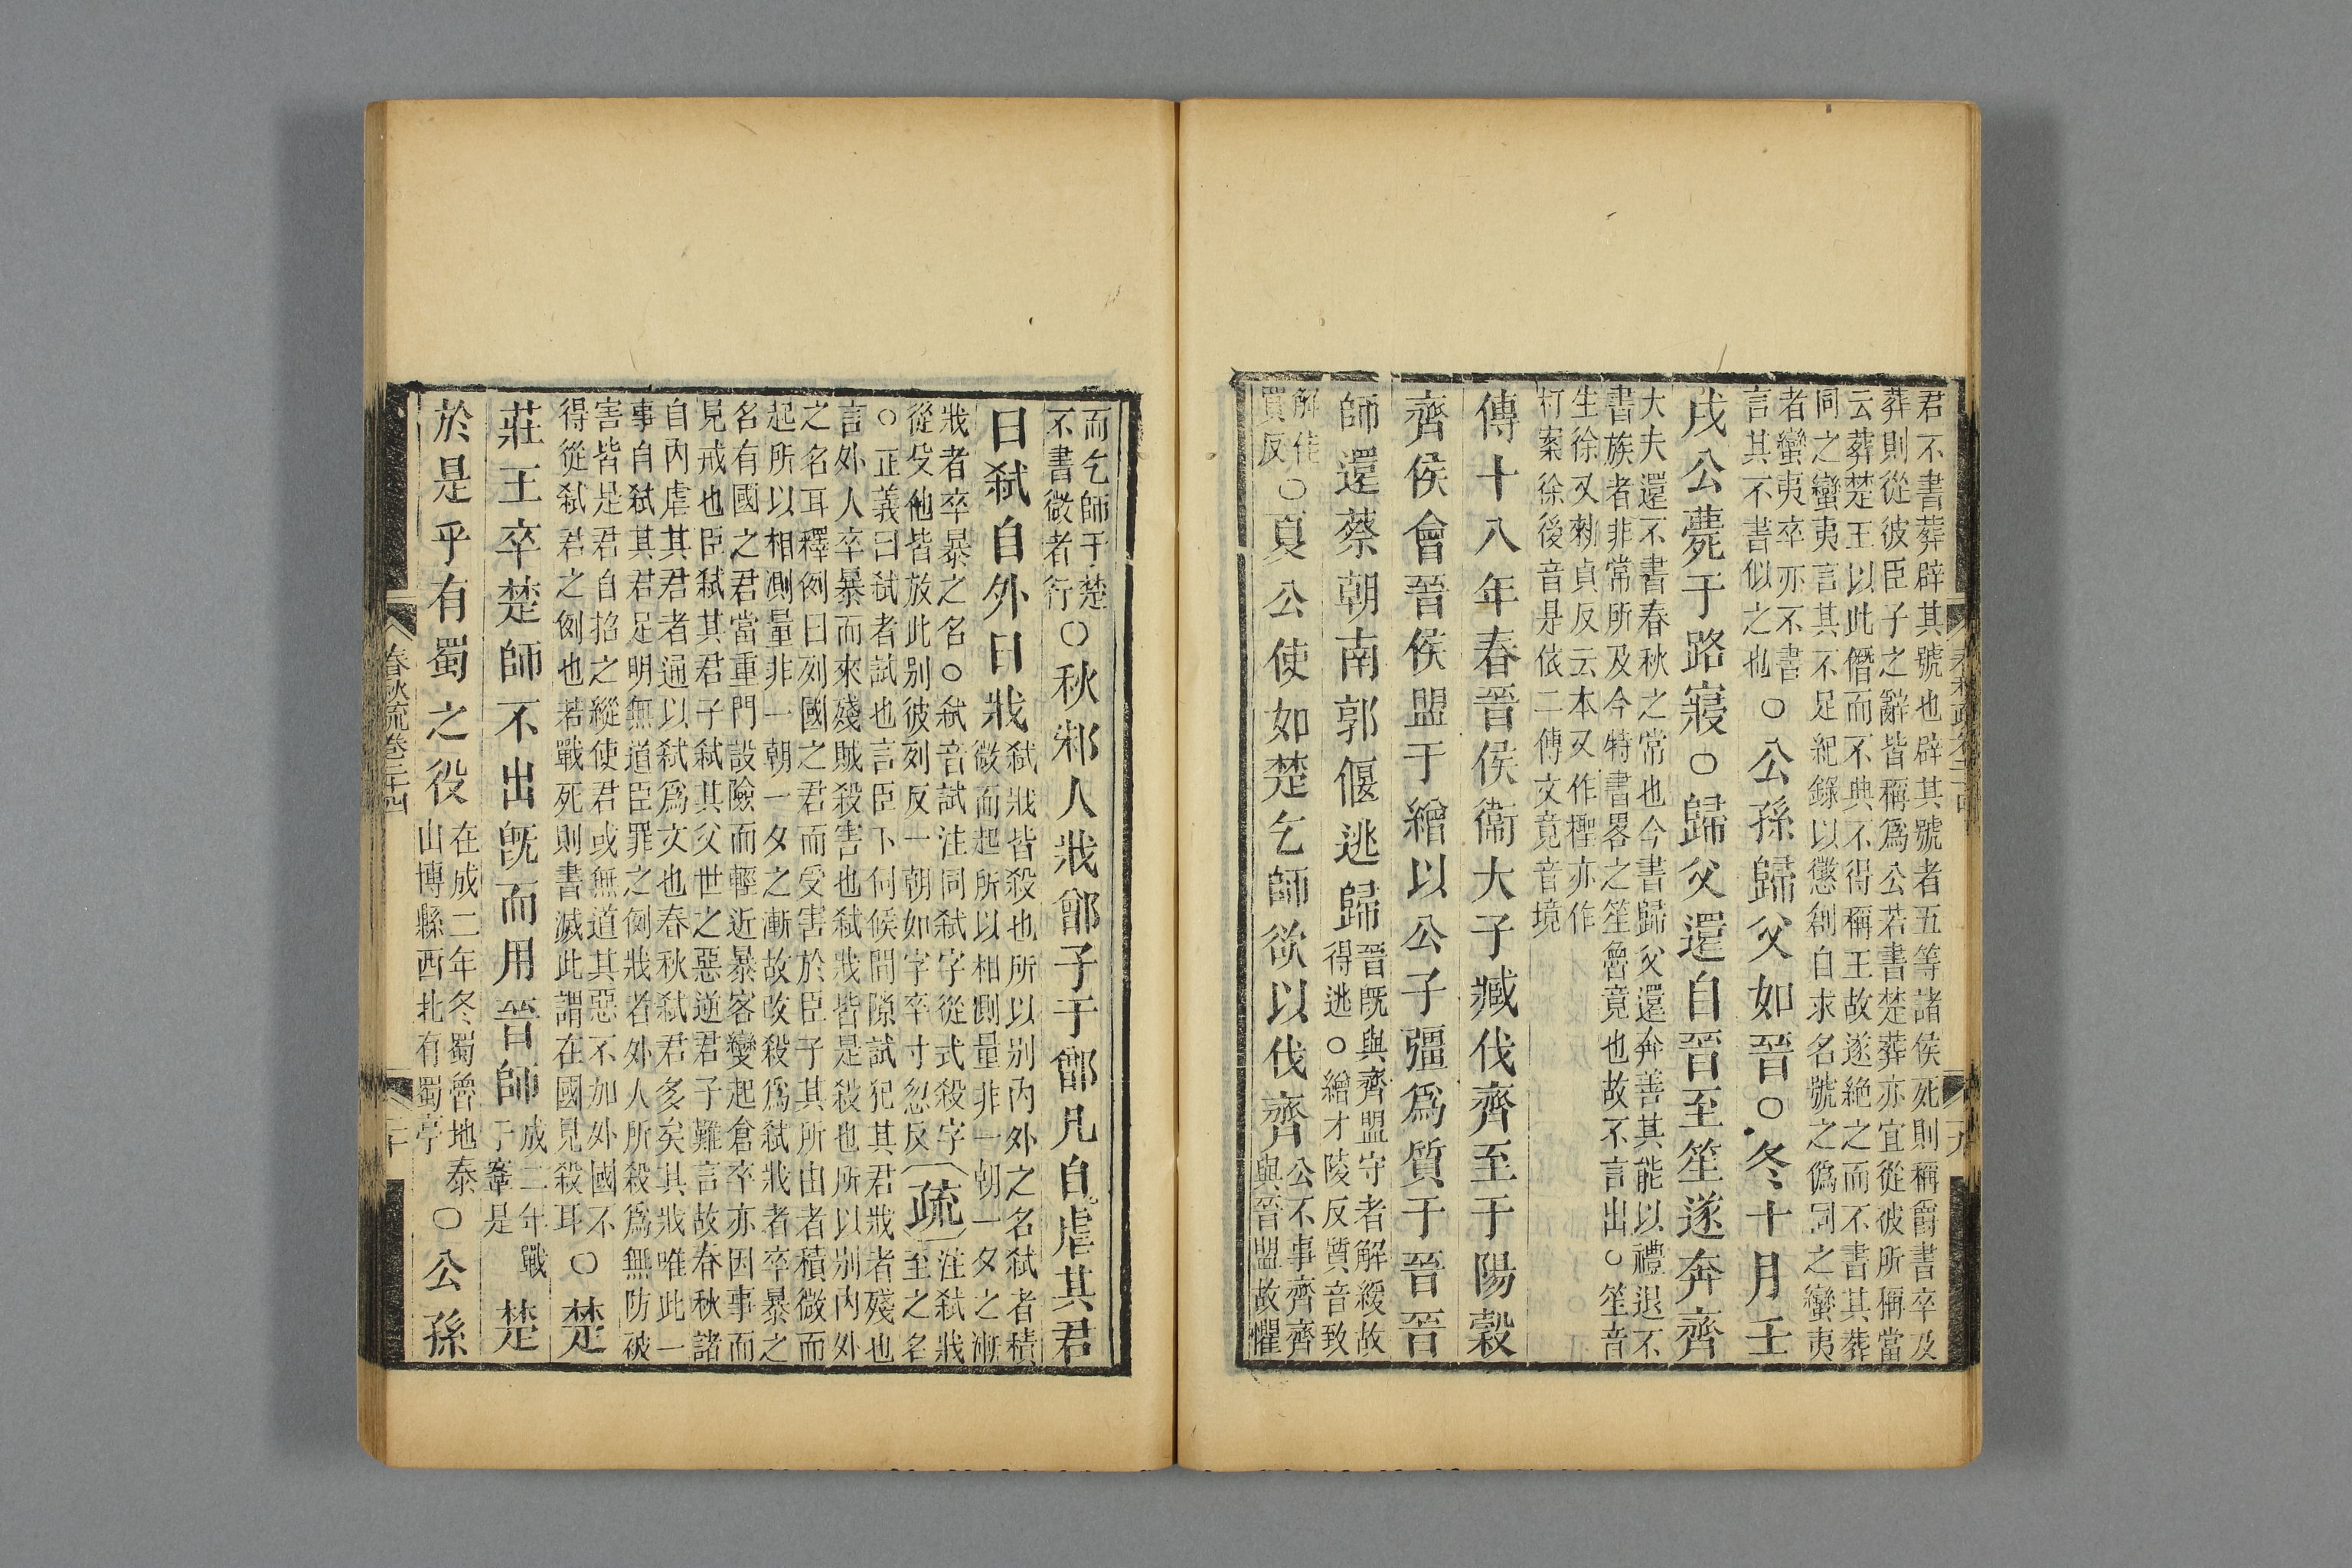 君不書葬辟其號也辟其號者五等諸侯死則稱爵書卒及
葬則從彼臣子之辭皆稱爲公若書楚葬亦宜從彼所稱當
云葬楚王以此僭而不典不得稱王故遂絕之而不書其葬
同之蠻夷言其不足紀錄以懲創自求名號之僞同之蠻夷
者蠻夷卒亦不書
言其不書似之也
○公孫歸父如晉○冬十月壬
戌公薨于路寢○歸父還自晉至笙遂奔齊
大夫還不書春秋之常也今書歸父還奔善其能以禮退不
書族者非常所及今特書畧之笙魯竟也故不言出○笙音
生徐又勑貞反云本又作檉亦作
朾案徐後音是依二傳文竟音境
傳十八年春晉侯衞大子臧伐齊至于陽穀
齊侯會晉侯盟于繒以公子彊爲質于晉晉
師還蔡朝南郭偃逃歸
晉既與齊盟守者解緩故
得逃○繒才陵反質音致
解佳
買反
○夏公使如楚乞師欲以伐齊
公不事齊齊
與晉盟故懼
而乞師于楚
不書微者行
○秋邾人戕鄫子于鄫凡自虐其君
曰弒自外曰戕
弒戕皆殺也所以别内外之名弒者積
微而起所以相測量非一朝一夕之漸
戕者卒暴之名○弒音試注同弒字從式殺字
從殳他皆放此别彼列反一朝如字卒寸忽反
疏
注弒戕
至之名
○正義曰弒者試也言臣下伺候間隙試犯其君戕者殘也
言外人卒暴而來殘賊殺害也弒戕皆是殺也所以别内外
之名耳釋例曰列國之君而受害於臣子其所由者積微而
起所以相測量非一朝一夕之漸故改殺爲弒戕者卒暴之
名有國之君當重門設險而輕近暴客變起倉卒亦因事而
見戒也臣弒其君子弒其父世之惡逆君子難言故春秋諸
自内虐其君者通以弒爲文也春秋弒君多矣其戕唯此一
事自弒其君足明無道臣罪之例戕者外人所殺爲無防被
害皆是君自招之縱使君或無道其惡不加外國不
得從弒君之例也若戰死則書滅此謂在國見殺耳
○楚
莊王卒楚師不出既而用晉師
成二年戰
于鞌是
楚
於是乎有蜀之役
在成二年冬蜀魯地泰
山博縣西北有蜀亭
○公孫
春秋疏卷二十四
二十